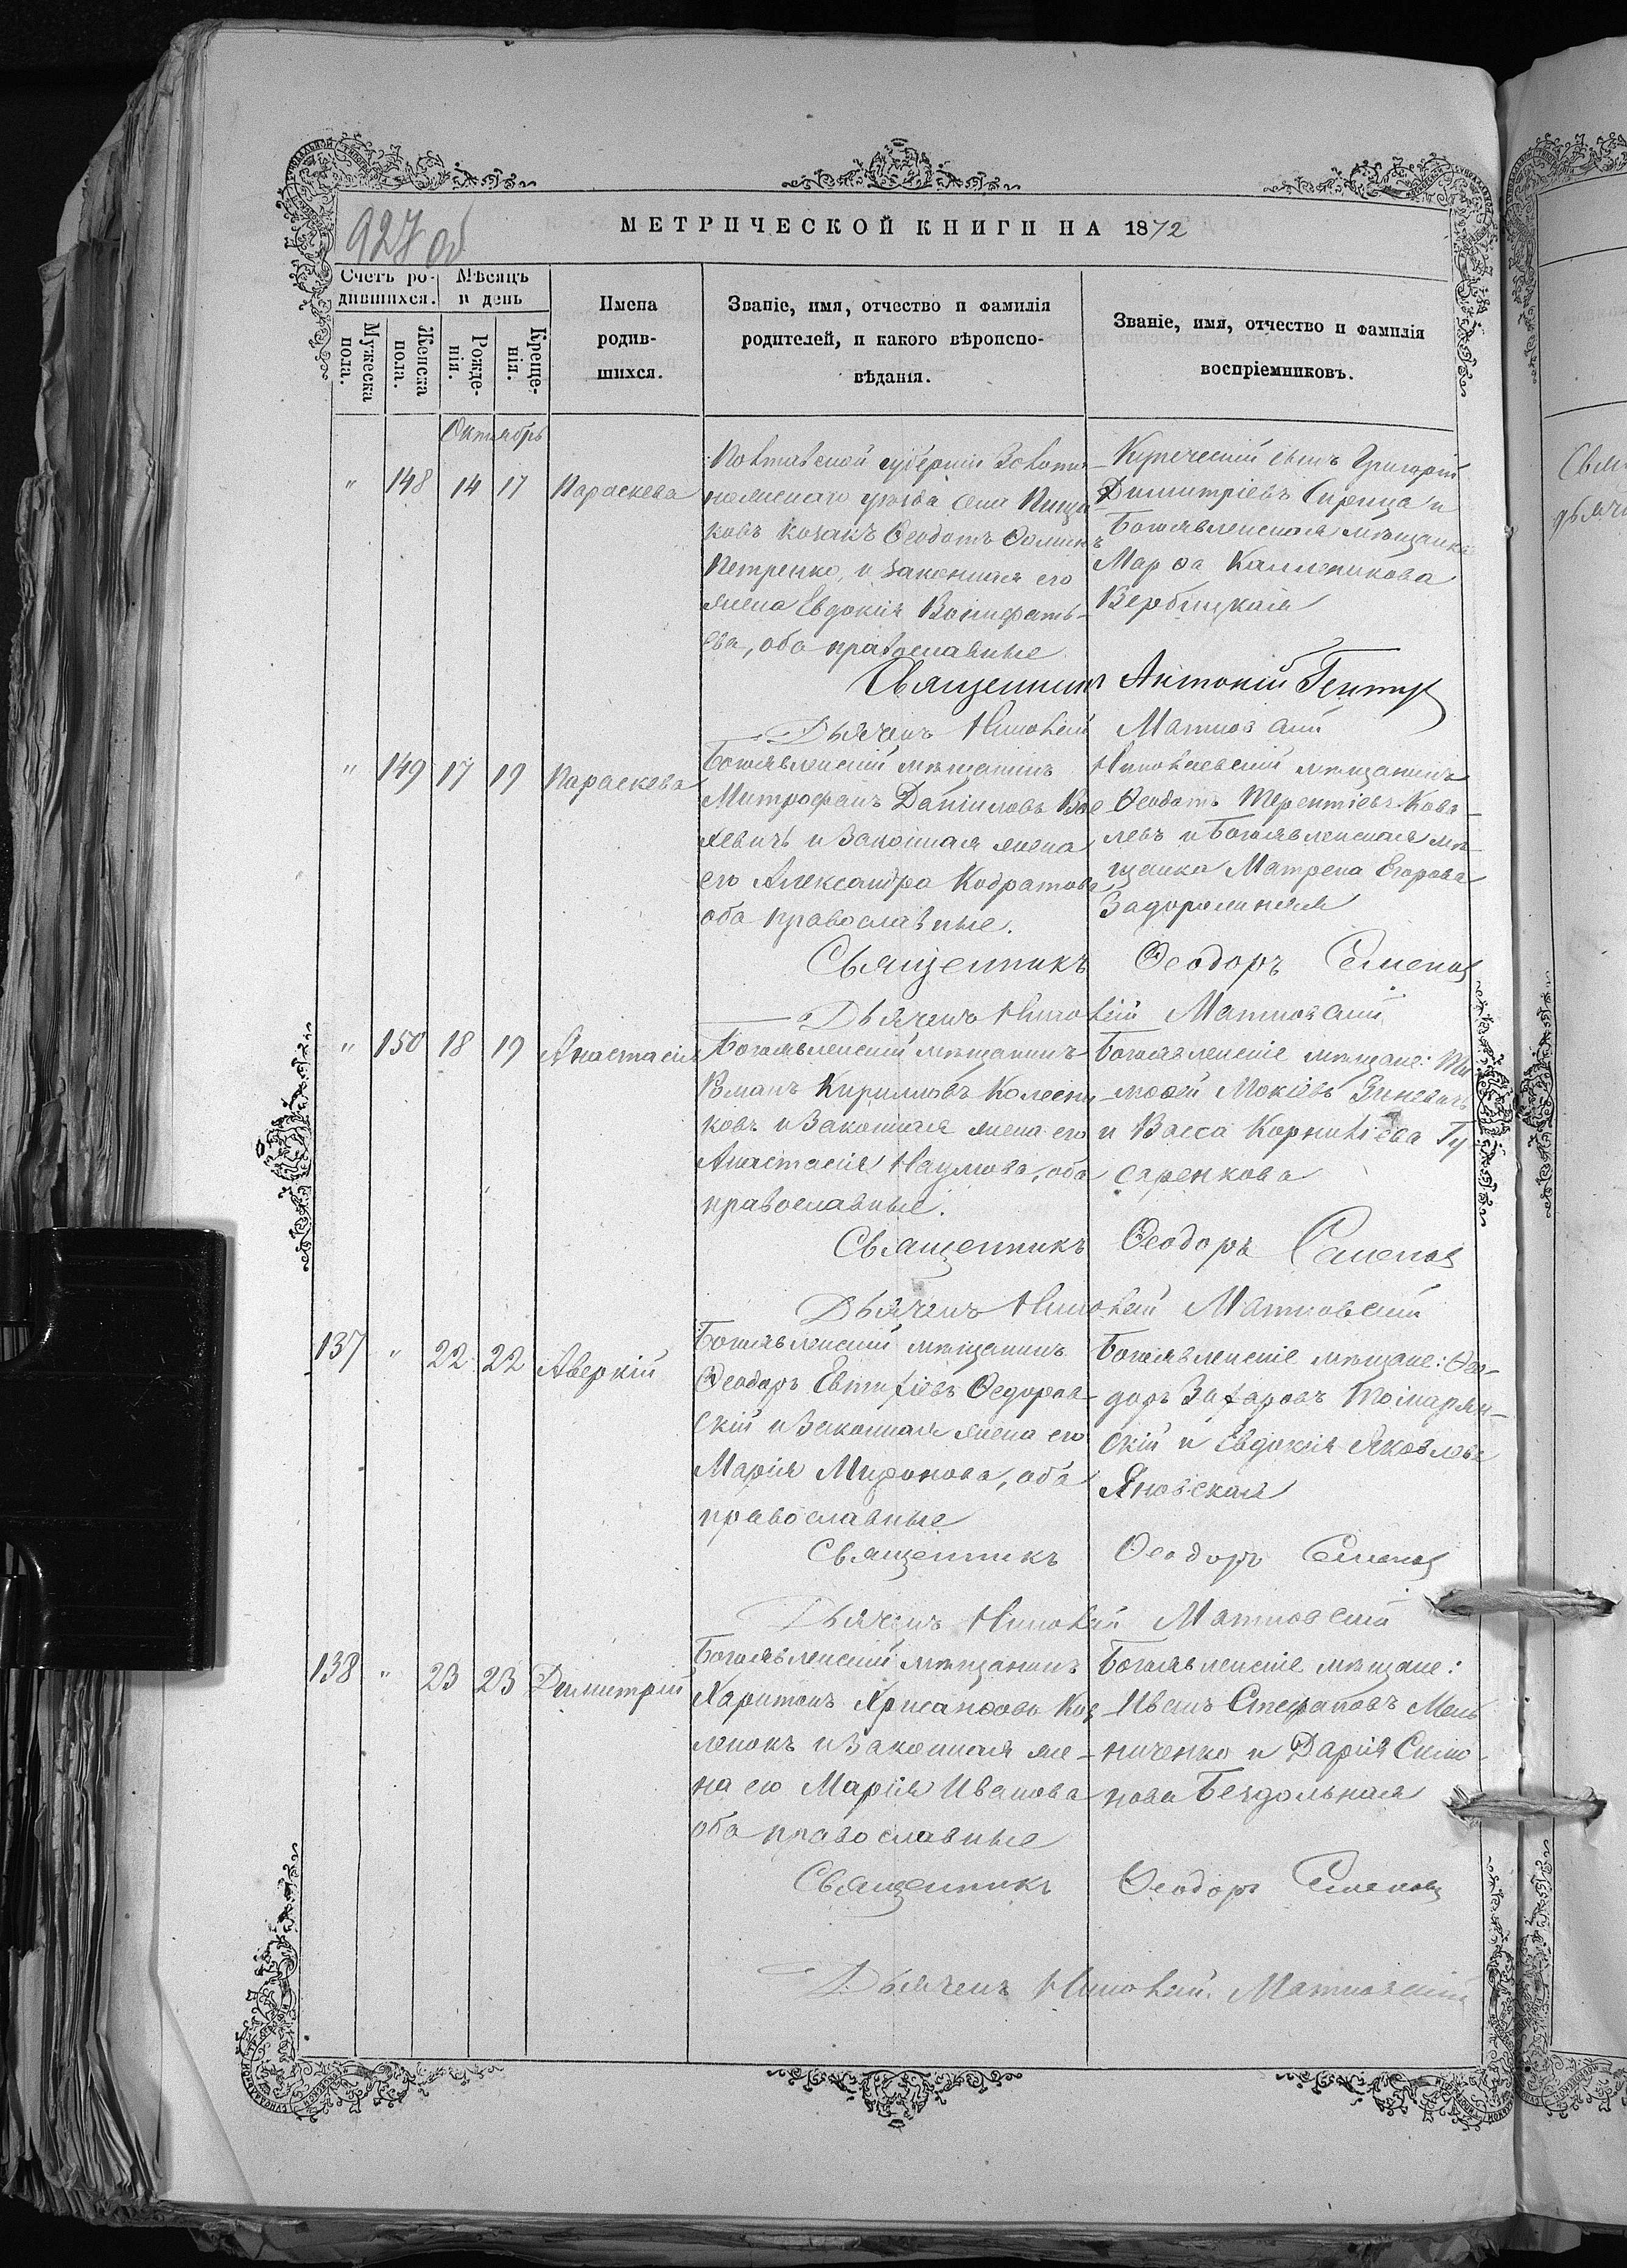 927 об
МЕТРИЧЕСКОЙ КНИГИ НА 1872
Счетъ ро-
дившихся.
Мѣсяцъ
и день
Мужеска
пола.
Женска
пола.
Рожде-
нія.
Креще-
нія.
Имена
родив-
шихся.
Званіе, имя, отчество и фамилія
родителей, и какого вѣроиспо-
вѣданія.
Званіе, имя, отчество и фамилія
воспріемниковъ.
Октябрь
" 148 14 17 Параскева
Полтавской губерніи Золото-
ношскаго уѣзда села Пищи
ковъ козакъ Ѳеодотъ Ѳоминъ
Петренко, и законная его
жена Евдокія Вонифать-
ева, оба православные
Купеческій сынъ Григорій
Димитріевъ и
Богоявленская мѣщанка
Марѳа Каленикова
Вербицкая
Священникъ Антоній
Дьячекъ Николай Матковскій
" 149 17 19 Параскева
Богоявленскій мѣщанинъ
Митрофанъ Даніиловъ Вое
левичъ и законная жена
его Александра Кодратова
оба православные.
Николаевскій мѣщанинъ
Ѳеодотъ Терентіевъ Кова
левъ и Богоявленская мѣ-
щанка Матрена Егорова
Задорожняя
Священникъ Ѳеодоръ Семенов
Дьячекъ Николай Матковскій
" 150 18 19 Анастасія
Богоявленскій мѣщанинъ
Романъ Кирилловъ Колесни
ковъ и законная жена его
Анастасія Наумова, оба
православные.
Богоявленскіе мѣщане: Ти
моѳей Мокіевъ Зиневичъ
и Васса Корниліева Гу
саренкова
Священникъ Ѳеодоръ Семенов
Дьячекъ Николай Матковскій
137 " 22 22 Аверкій
Богоявленскій мѣщанинъ
Ѳеодоръ Евтихіевъ Ѳедоров-
скій и законная жена его
Марія Миронова, оба
православные
Богоявленскіе мѣщане: Ѳео-
доръ Захаровъ
скій и Евдокія Яковлева
Яновская
Священникъ Ѳеодоръ Семенов
Дьячекъ Николай Матковскій
138 " 23 23 Димитрій
Богоявленскій мѣщанинъ
Харитонъ Хрисанѳовъ Коз
ленокъ и законная же-
на его Марія Иванова
оба православные
Богоявленскіе мѣщане:
Иванъ Стефановъ Мель
ниченко и Дарія Симо-
нова Бездольная
Священникъ Ѳеодоръ Семенов
Дьячекъ Николай Матковскій